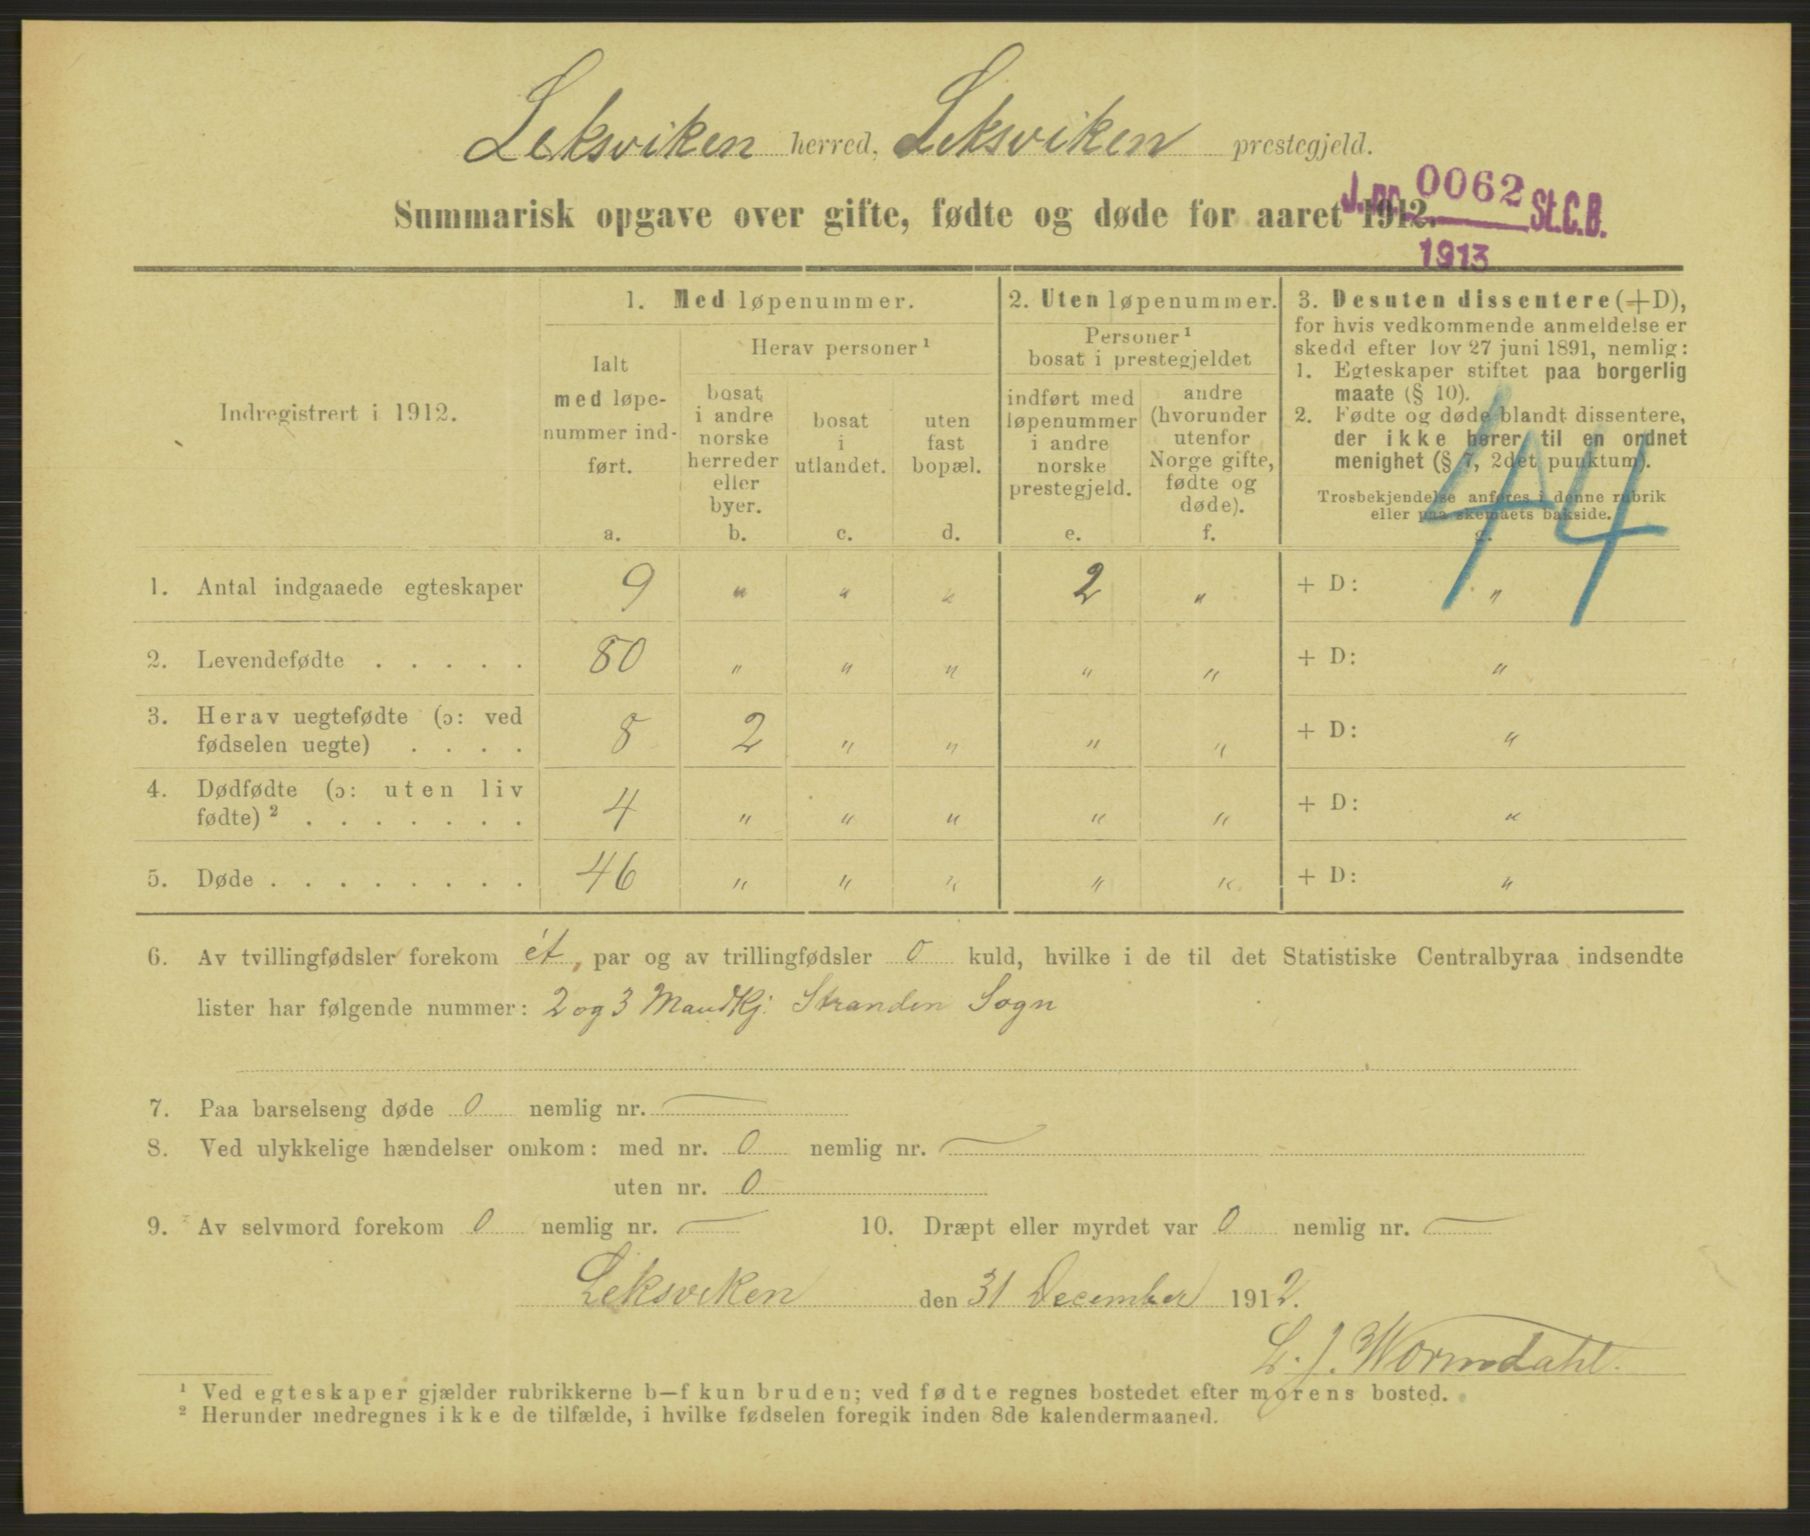 Leksviken herred, Leksviken prestegjeld.
Summarisk opgave over gifte, fødte og døde for aaret 1912.
J.nr. 0062 St.C.B.
1913
Indregistrert i 1912.
1. Med løpenummer.
Ialt
med løpe-
nummer ind-
ført.
a.
Herav personer ¹
bosat
i andre
norske
herreder
eller
byer.
b.
bosat
i
utlandet.
c.
uten
fast
bopæl.
d.
2. Uten løpenummer.
Personer ¹
bosat i prestegjeldet
indført med
løpenummer
i andre
norske
prestegjeld.
e.
andre
(hvorunder
utenfor
Norge gifte,
fødte og
døde).
f.
3. Desuten dissentere (+D),
for hvis vedkommende anmeldelse er
skedd efter lov 27 juni 1891, nemlig:
1. Egteskaper stiftet paa borgerlig
maate (§ 10).
2. Fødte og døde blandt dissentere,
der ikke hører til en ordnet
menighet (§ 7, 2det punktum).
Trosbekjendelse anføres i denne rubrik
eller paa skemaets bakside.
g.
44
1. Antal indgaaede egteskaper 9 " " " 2 " + D: "
2. Levendefødte . . . . . 80 " " " " " + D: "
3. Herav uegtefødte (ɔ: ved
fødselen uegte) . . . . 8 2 " " " " + D: "
4. Dødfødte (ɔ: uten liv
fødte) ² . . . . . . . 4 " " " " " + D: "
5. Døde . . . . . . . . 46 " " " " " + D: "
6. Av tvillingfødsler forekom ét, par og av trillingfødsler 0 kuld, hvilke i de til det Statistiske Centralbyraa indsendte
lister har følgende nummer: 2 og 3 Mandkj. Stranden Sogn
7. Paa barselseng døde 0 nemlig nr. —
8. Ved ulykkelige hændelser omkom: med nr. 0 nemlig nr. —
uten nr. 0
9. Av selvmord forekom 0 nemlig nr. — 10. Dræpt eller myrdet var 0 nemlig nr. —
Leksviken den 31 December 1912.
L. J. Wormdahl.
¹ Ved egteskaper gjælder rubrikkerne b—f kun bruden; ved fødte regnes bostedet efter morens bosted.
² Herunder medregnes ikke de tilfælde, i hvilke fødselen foregik inden 8de kalendermaaned.